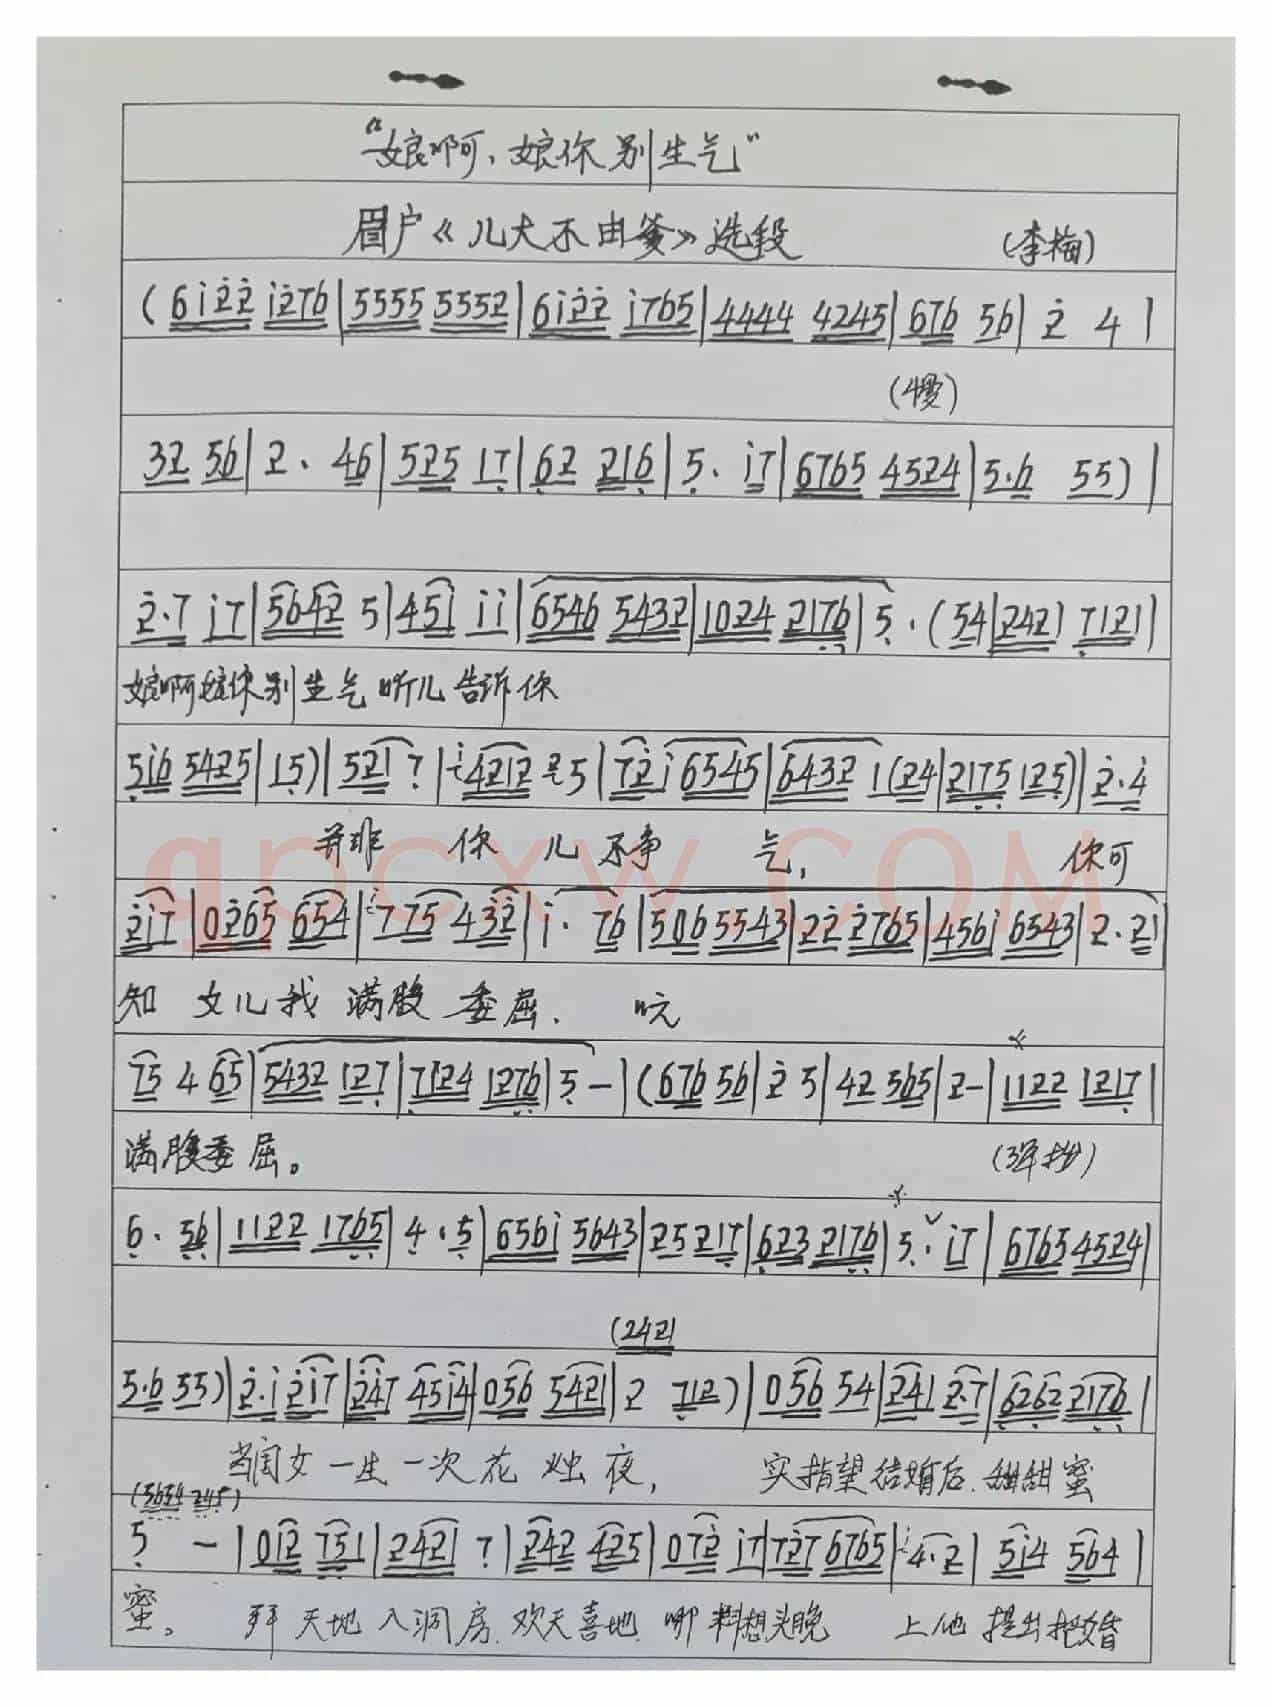 “娘啊、娘你别生气”
眉户《儿大不由爹》选段 (李梅)
(6i22 i276|5555 5552|6i22 i765|4444 4245|676 56|2 4|
(慢)
32 56|2· 46|525 17|62 216|5· i7|6765 4524|5·6 55)|
2·7 i7|5642 5|451 ii|6546 5432|1024 2176|5·(54|2421 7121|
娘啊娘你别生气听儿告诉你
5i6 5425|15)|521 7|4212 25|72i 6545|6432 1(24|2175 125)|2·4
并非 你 儿 不争 气, 你可
2i7|0265 654|775 432|i· 76|506 5543|22 2765|456i 6543|2·21|
知 女儿我 满腹 委屈.
75 4 65|5432 127|7124 1276|5-|(676 56|2 5|42 565|2-|1122 1217|
满腹委屈。
6·56|1122 1765|4·5|656i 5643|25 217|623 2176|5·i7|6765 4524|
(2421
5·6 55)|2·i 2i7|247 45i4|056 5421|2 712)|056 54|241 2·7|6262 2176|
当闺女一生一次花 烛 夜, 实指望结婚后.甜甜蜜
(5654 245)
5 -|0i2 751|2421 7|242 425|072 i7|727 6765|4·2|5i4 564|
蜜。 拜天地入洞房.欢天喜地.哪料想头晚 上他提出把婚
gpcxw.COM